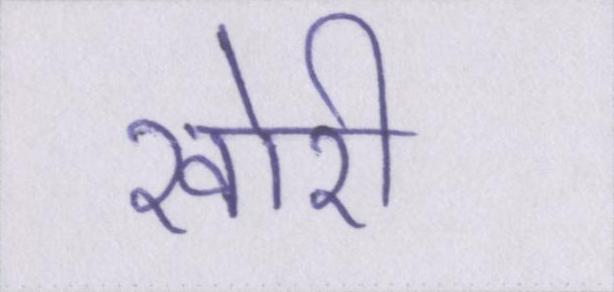 खोरी